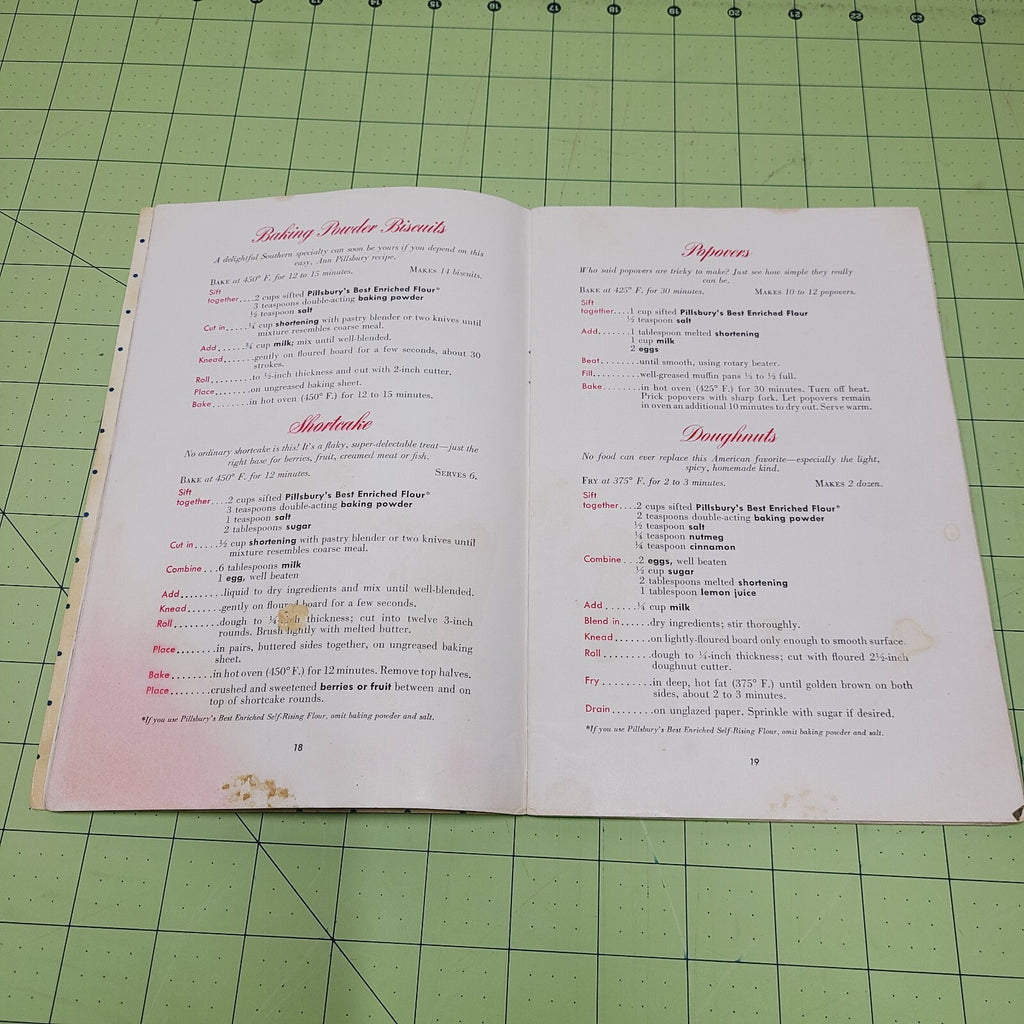 13
14
15
16
17
18
19
20
21
22
23
24
Baking Powder Biscuits
A delightful Southern specialty can soon be yours if you depend on this
easy, Ann Pillsbury recipe.
BAKE at 450° F. for 12 to 15 minutes. MAKES 14 biscuits.
Sift
together....2 cups sifted Pillsbury's Best Enriched Flour*
3 teaspoons double-acting baking powder
½ teaspoon salt
Cut in.....¼ cup shortening with pastry blender or two knives until
mixture resembles coarse meal.
Add........¾ cup milk; mix until well-blended.
Knead......gently on floured board for a few seconds, about 30
strokes.
Roll........to ½-inch thickness and cut with 2-inch cutter.
Place.......on ungreased baking sheet.
Bake.......in hot oven (450° F.) for 12 to 15 minutes.
Shortcake
No ordinary shortcake is this! It's a flaky, super-delectable treat—just the
right base for berries, fruit, creamed meat or fish.
BAKE at 450° F. for 12 minutes. SERVES 6.
Sift
together....2 cups sifted Pillsbury's Best Enriched Flour*
3 teaspoons double-acting baking powder
1 teaspoon salt
2 tablespoons sugar
Cut in.....½ cup shortening with pastry blender or two knives until
mixture resembles coarse meal.
Combine...6 tablespoons milk
1 egg, well beaten
Add.......liquid to dry ingredients and mix until well-blended.
Knead......gently on floured board for a few seconds.
Roll........dough to ¼-inch thickness; cut into twelve 3-inch
rounds. Brush lightly with melted butter.
Place.......in pairs, buttered sides together, on ungreased baking
sheet.
Bake.......in hot oven (450° F.) for 12 minutes. Remove top halves.
Place.......crushed and sweetened berries or fruit between and on
top of shortcake rounds.
*If you use Pillsbury's Best Enriched Self-Rising Flour, omit baking powder and salt.
18
Popovers
Who said popovers are tricky to make? Just see how simple they really
can be.
BAKE at 425° F. for 30 minutes. MAKES 10 to 12 popovers.
Sift
together....1 cup sifted Pillsbury's Best Enriched Flour
½ teaspoon salt
Add.......1 tablespoon melted shortening
1 cup milk
2 eggs
Beat.......until smooth, using rotary beater.
Fill.........well-greased muffin pans ⅓ to ½ full.
Bake.......in hot oven (425° F.) for 30 minutes. Turn off heat.
Prick popovers with sharp fork. Let popovers remain
in oven an additional 10 minutes to dry out. Serve warm.
Doughnuts
No food can ever replace this American favorite—especially the light,
spicy, homemade kind.
FRY at 375° F. for 2 to 3 minutes. MAKES 2 dozen.
Sift
together....2 cups sifted Pillsbury's Best Enriched Flour*
2 teaspoons double-acting baking powder
½ teaspoon salt
¼ teaspoon nutmeg
¼ teaspoon cinnamon
Combine...2 eggs, well beaten
½ cup sugar
2 tablespoons melted shortening
1 tablespoon lemon juice
Add.......¼ cup milk
Blend in.....dry ingredients; stir thoroughly.
Knead......on lightly-floured board only enough to smooth surface.
Roll........dough to ¼-inch thickness; cut with floured 2½-inch
doughnut cutter.
Fry.........in deep, hot fat (375° F.) until golden brown on both
sides, about 2 to 3 minutes.
Drain.......on unglazed paper. Sprinkle with sugar if desired.
*If you use Pillsbury's Best Enriched Self-Rising Flour, omit baking powder and salt.
19